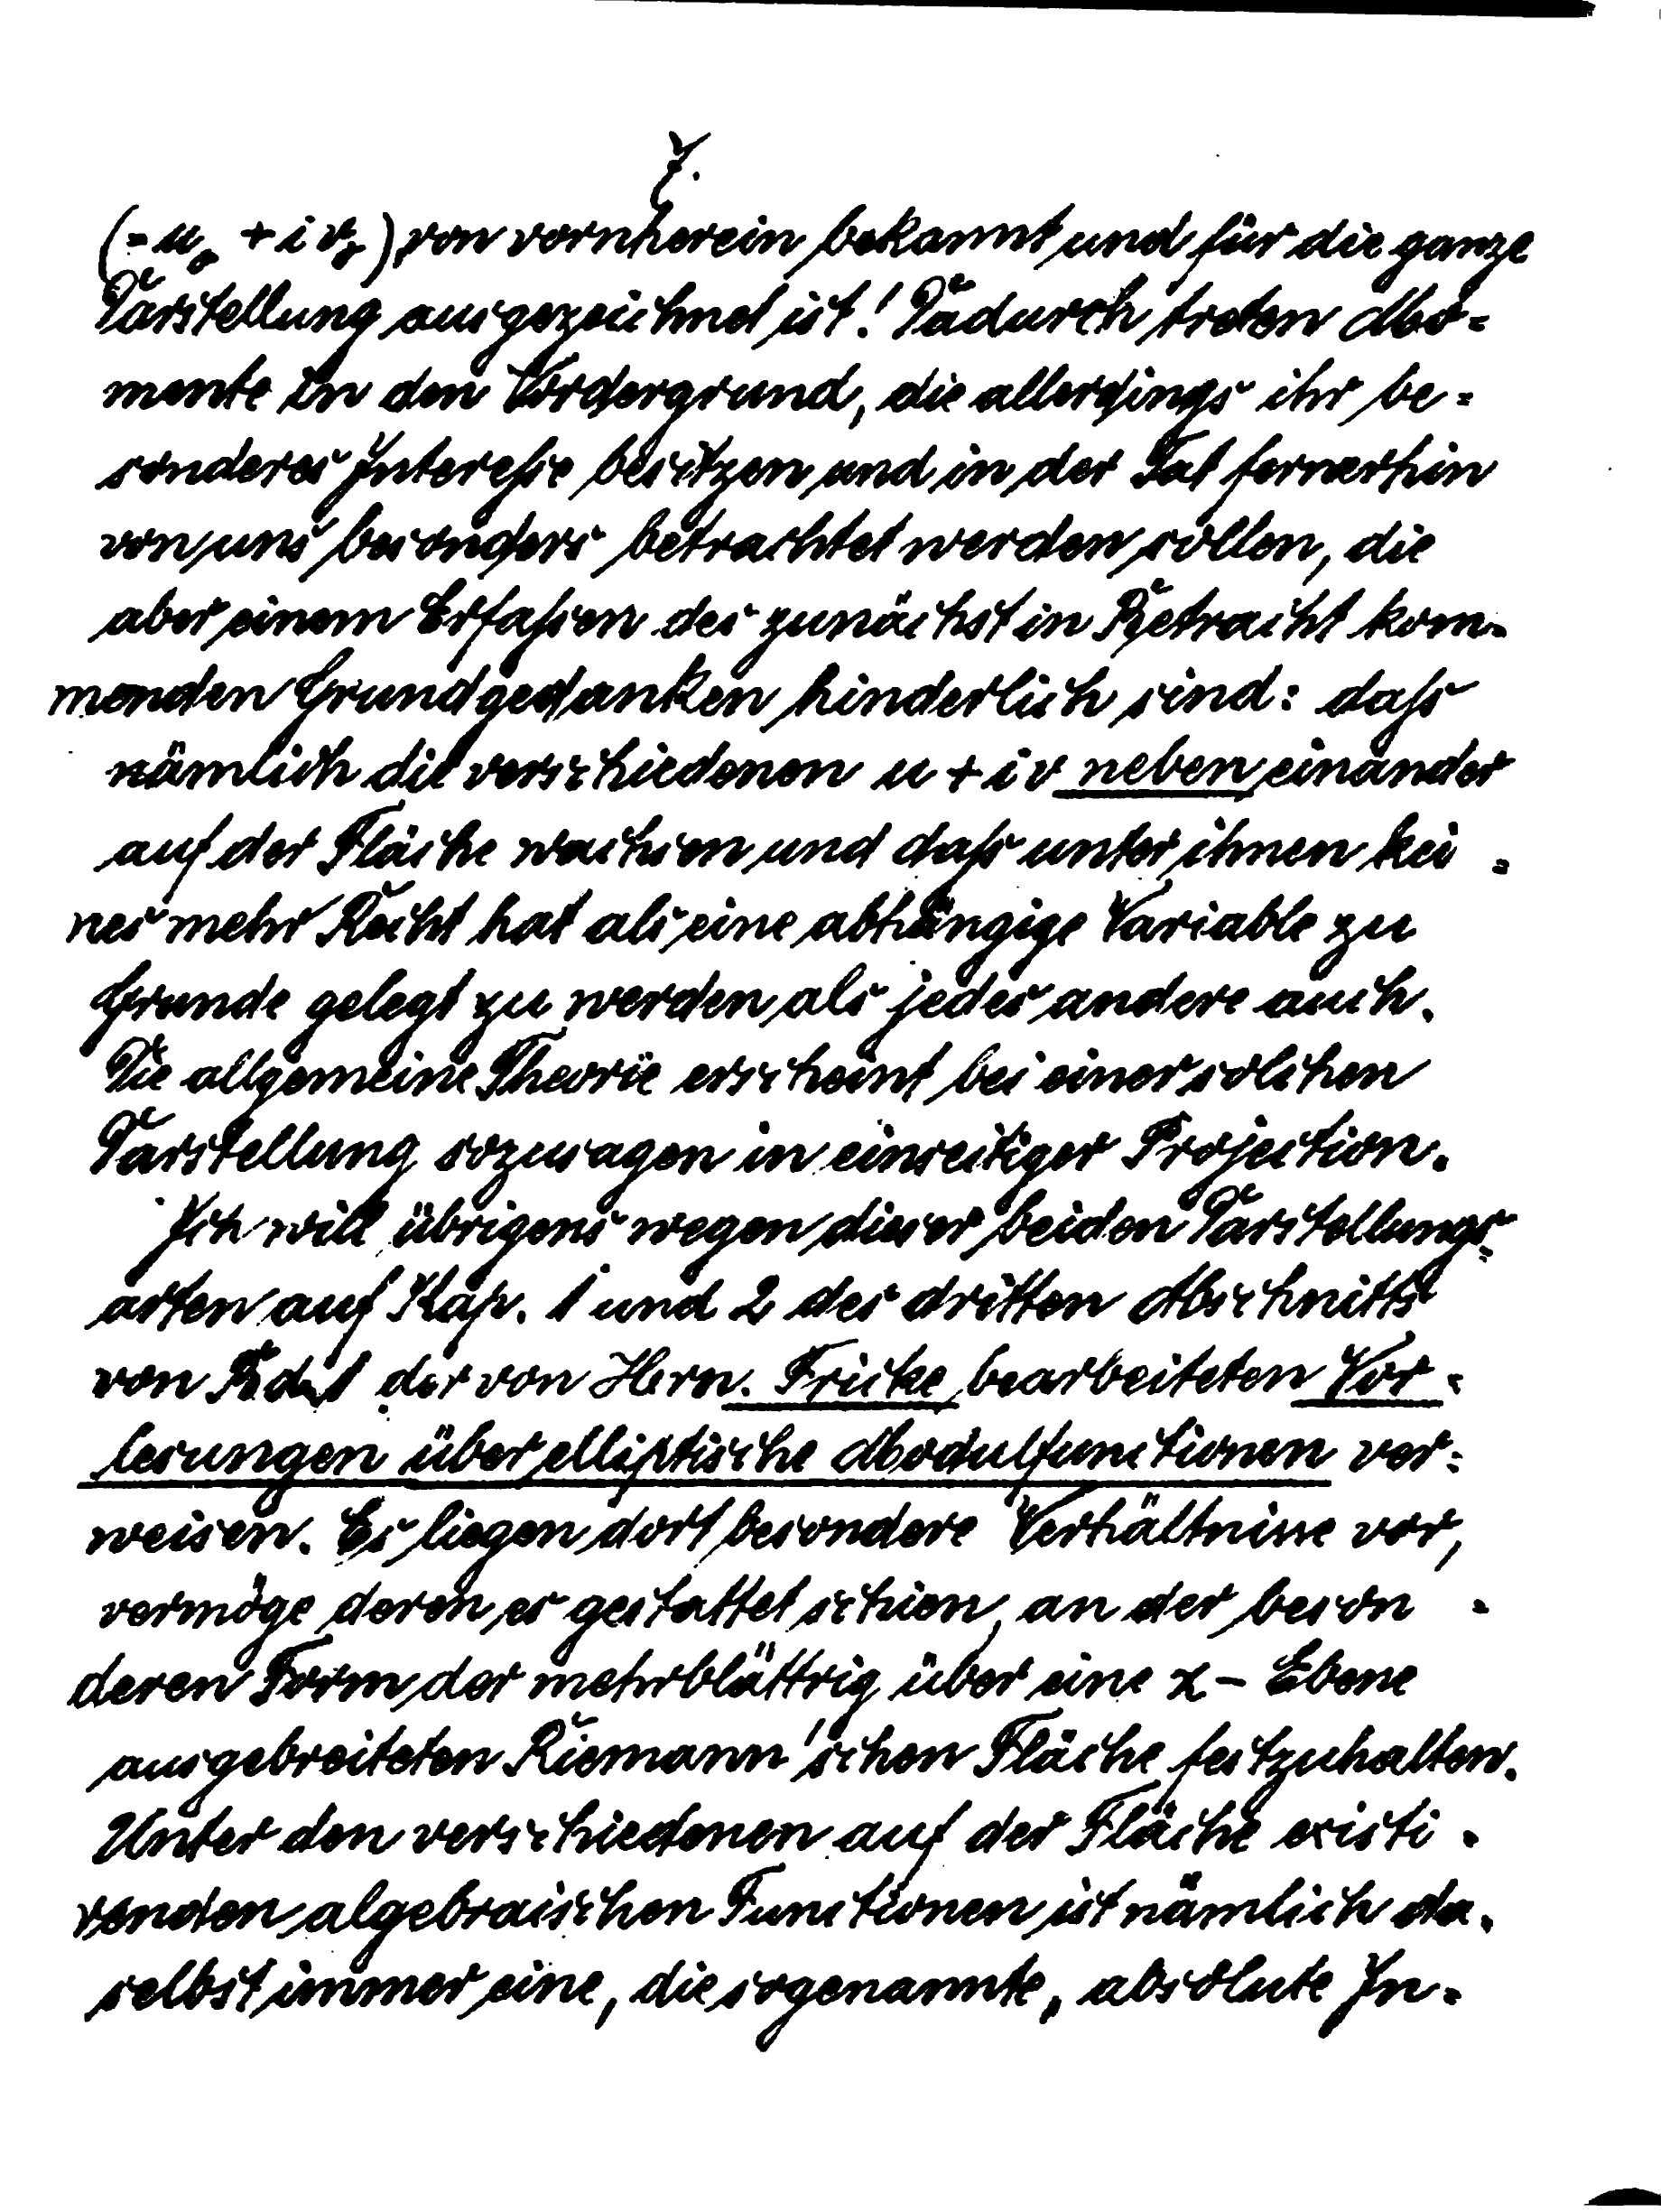 7.
(= u₀ + i v₀) von vornherein bekannt und für die ganze
Darstellung ausgezeichnet ist! Dadurch treten Mo-
mente in den Vordergrund, die allerdings ihr be-
sonderes Interesse besitzen und in der Tat fernerhin
von uns besonders betrachtet werden sollen, die
aber einem Erfassen des zunächst in Betracht kom-
menden Grundgedanken hinderlich sind: dass
nämlich die verschiedenen u + i v neben einander
auf der Fläche wachsen und dass unter ihnen kei-
nes mehr Recht hat als eine abhängige Variable zu
Grunde gelegt zu werden als jedes andere auch.
Die allgemeine Theorie erscheint bei einer solchen
Darstellung sozusagen in einseitiger Projection.
Ich will übrigens wegen dieser beiden Darstellungs-
arten auf Kap. 1 und 2 des dritten Abschnitts
von Bd. 1 der von Hern. Fricke bearbeiteten Vor-
lesungen über elliptische Modulfunctionen ver-
weisen. Es liegen dort besondere Verhältnisse vor,
vermöge deren es gestattet schien, an der beson-
deren Form der mehrblättrig über eine z - Ebene
ausgebreiteten Riemann'schen Fläche festzuhalten.
Unter den verschiedenen auf der Fläche existi-
renden algebraischen Functionen ist nämlich da-
selbst immer eine, die sogenannte, absolute In-